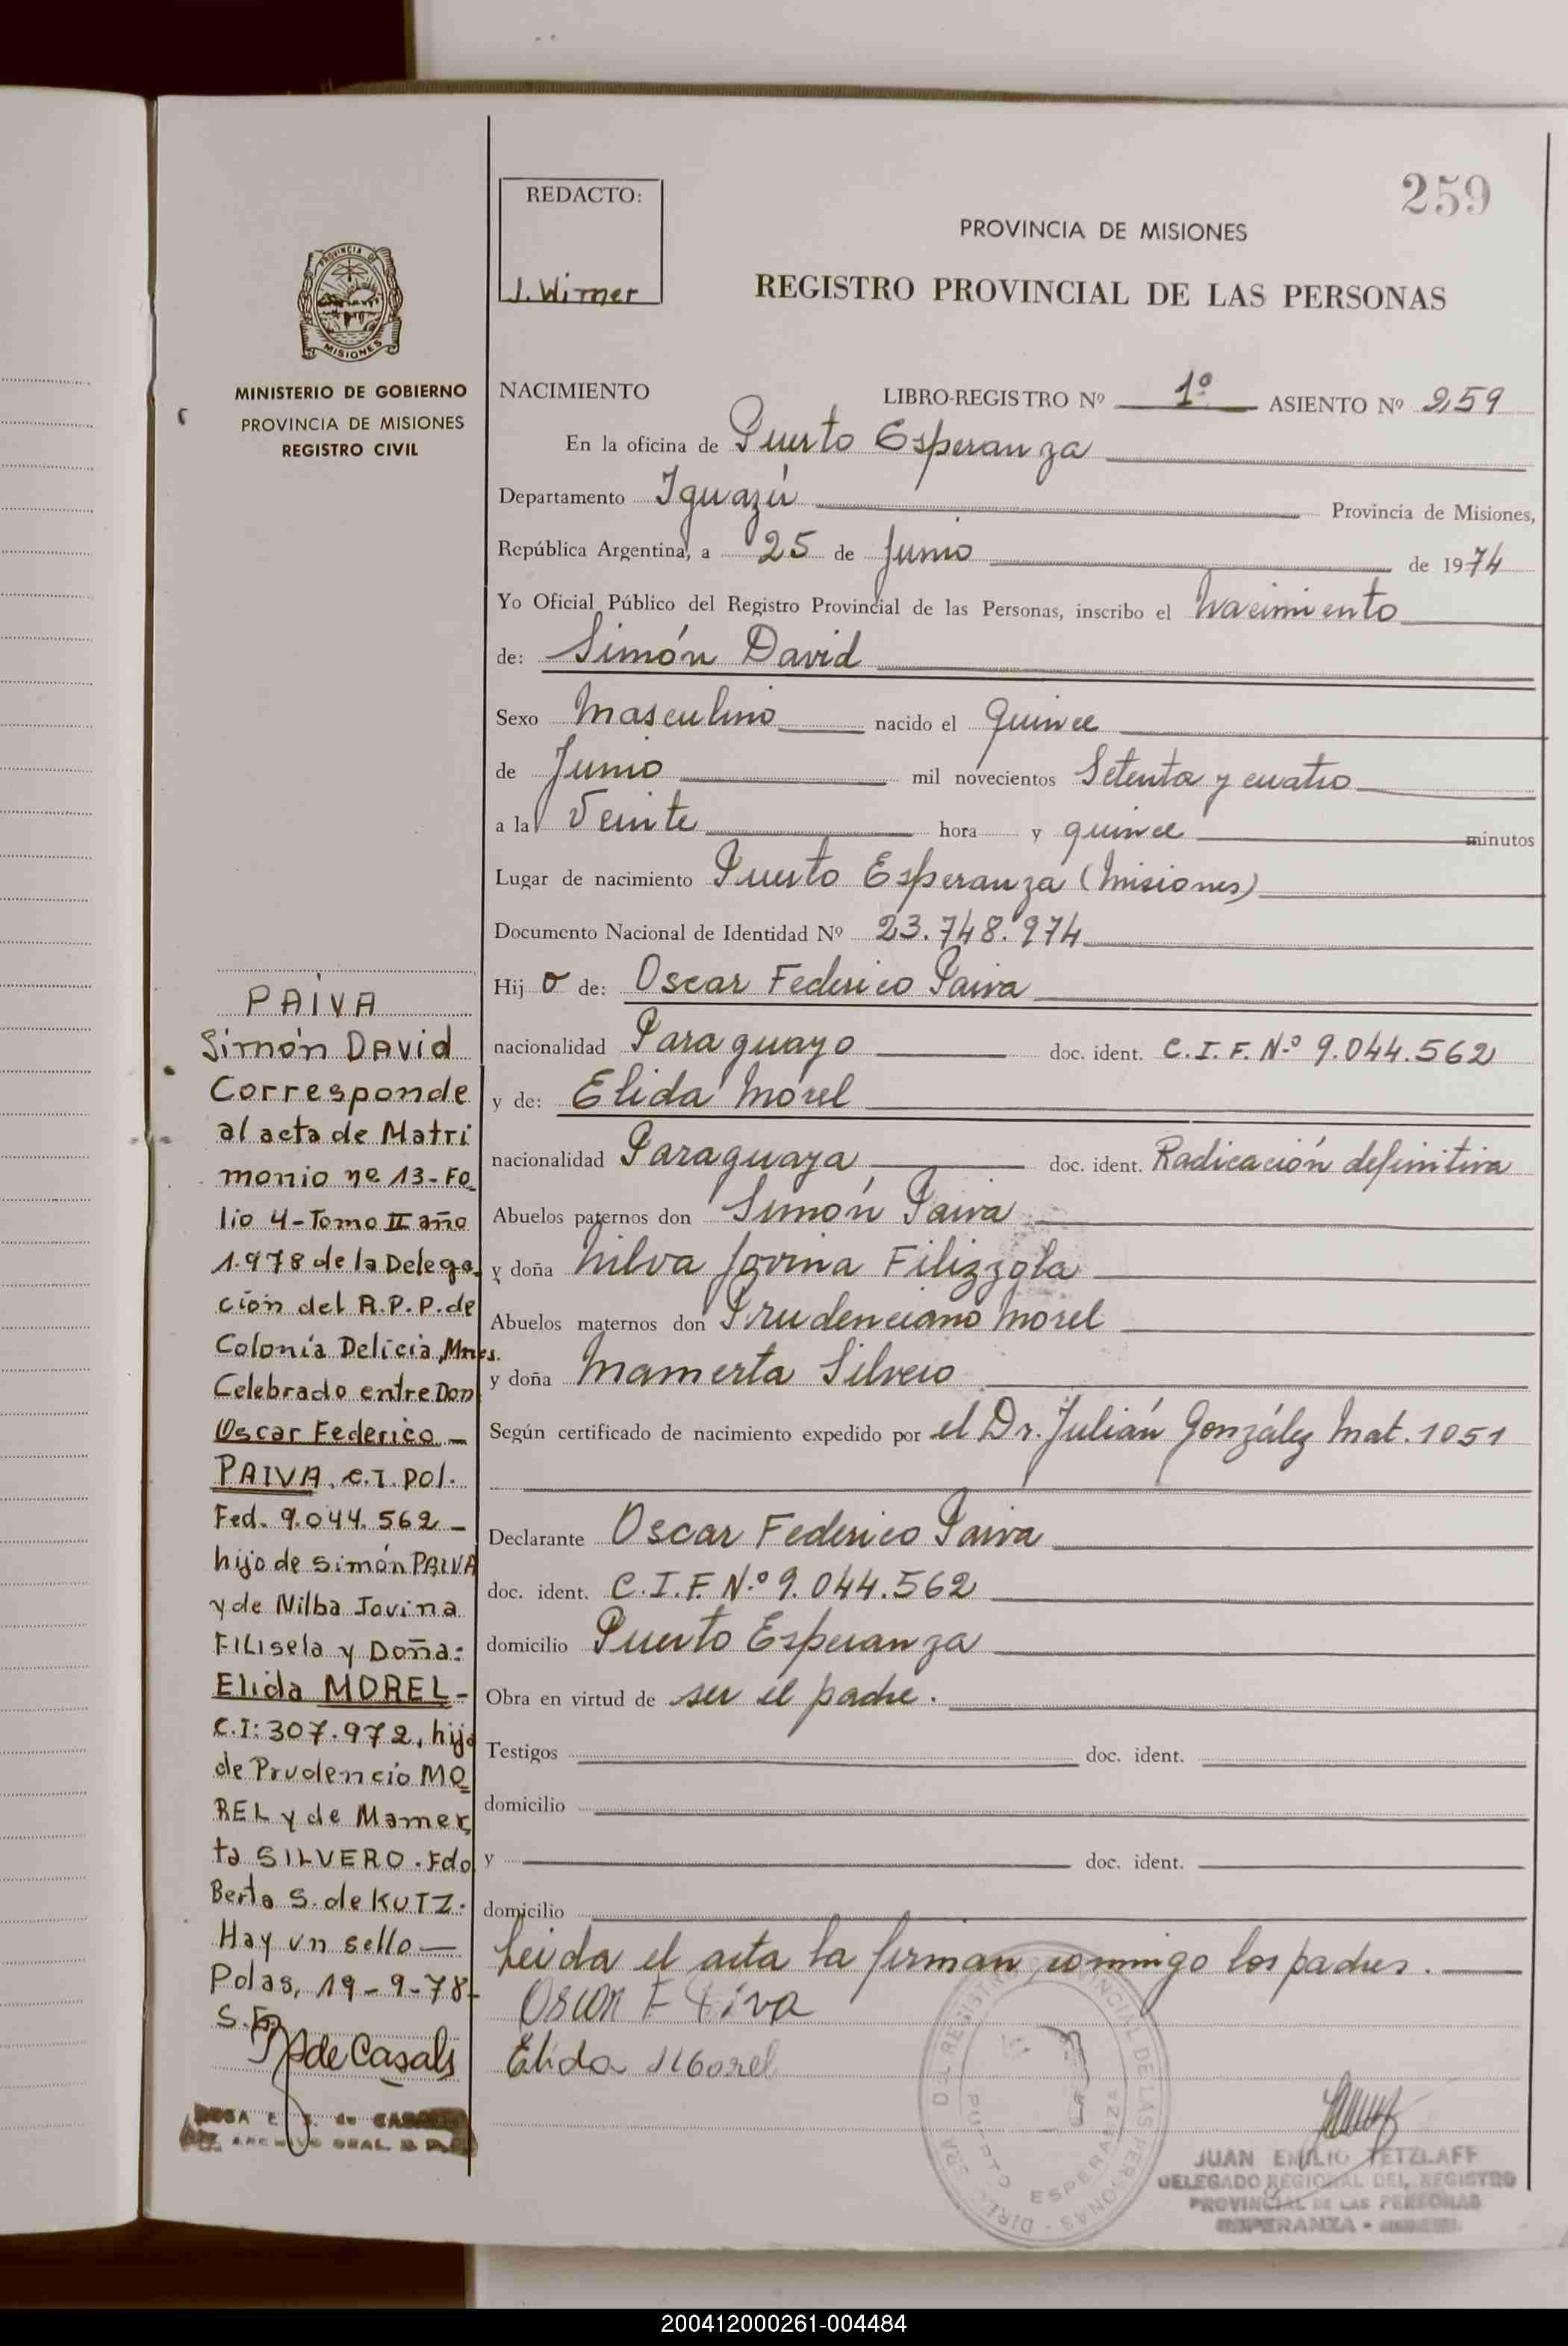 259
REDACTO:
J. Wimer
PROVINCIA DE MISIONES
REGISTRO PROVINCIAL DE LAS PERSONAS
PROVINCIA DE
MISIONES
MINISTERIO DE GOBIERNO
PROVINCIA DE MISIONES
REGISTRO CIVIL
NACIMIENTO LIBRO-REGISTRO Nº 1º ASIENTO Nº 259
En la oficina de Puerto Esperanza
Departamento Iguazú Provincia de Misiones,
República Argentina, a 25 de Junio de 1974
Yo Oficial Público del Registro Provincial de las Personas, inscribo el Nacimiento
de: Simón David
Sexo Masculino nacido el Quince
de Junio mil novecientos Setenta y cuatro
a la Veinte hora y quince minutos
Lugar de nacimiento Puerto Esperanza (Misiones)
Documento Nacional de Identidad Nº 23.748.974
Hij o de: Oscar Federico Paiva
nacionalidad Paraguayo doc. ident. C.I.F. N.º 9.044.562
y de: Elida Morel
nacionalidad Paraguaya doc. ident. Radicación definitiva
Abuelos paternos don Simón Paiva
y doña Nilva Jovina Filizzola
Abuelos maternos don Prudenciano Morel
y doña Mamerta Silveio
Según certificado de nacimiento expedido por el Dr. Julián González Mat. 1051
Declarante Oscar Federico Paiva
doc. ident. C.I.F. N.º 9.044.562
domicilio Puerto Esperanza
Obra en virtud de ser el padre.
Testigos doc. ident.
domicilio
y doc. ident.
domicilio
Leida el acta la firman conmigo los padres.
Oscar F Paiva
Elida Morel
PAIVA
Simón David
Corresponde
al acta de Matri
monio nº 13-Fo
lio 4-Tomo II año
1.978 de la Delega
ción del R.P.P. de
Colonia Delicia, Mnes.
Celebrado entre Don
Oscar Federico
PAIVA, C.I. Pol.
Fed. 9.044.562
hijo de Simón PAIVA
y de Nilba Jovina
FILISela y Doña:
Elida MOREL-
C.I: 307.972, hija
de Prudencio MO
REL y de Mamer
ta SILVERO. Fdo
Berta S. de KUTZ.
Hay un sello
Pdas, 19-9-78-
de Casals
PUERTO ESPERANZA
JUAN EMILIO TETZLAFF
DELEGADO REGIONAL DEL REGISTRO
PROVINCIAL DE LAS PERSONAS
ESPERANZA -
200412000261-004484